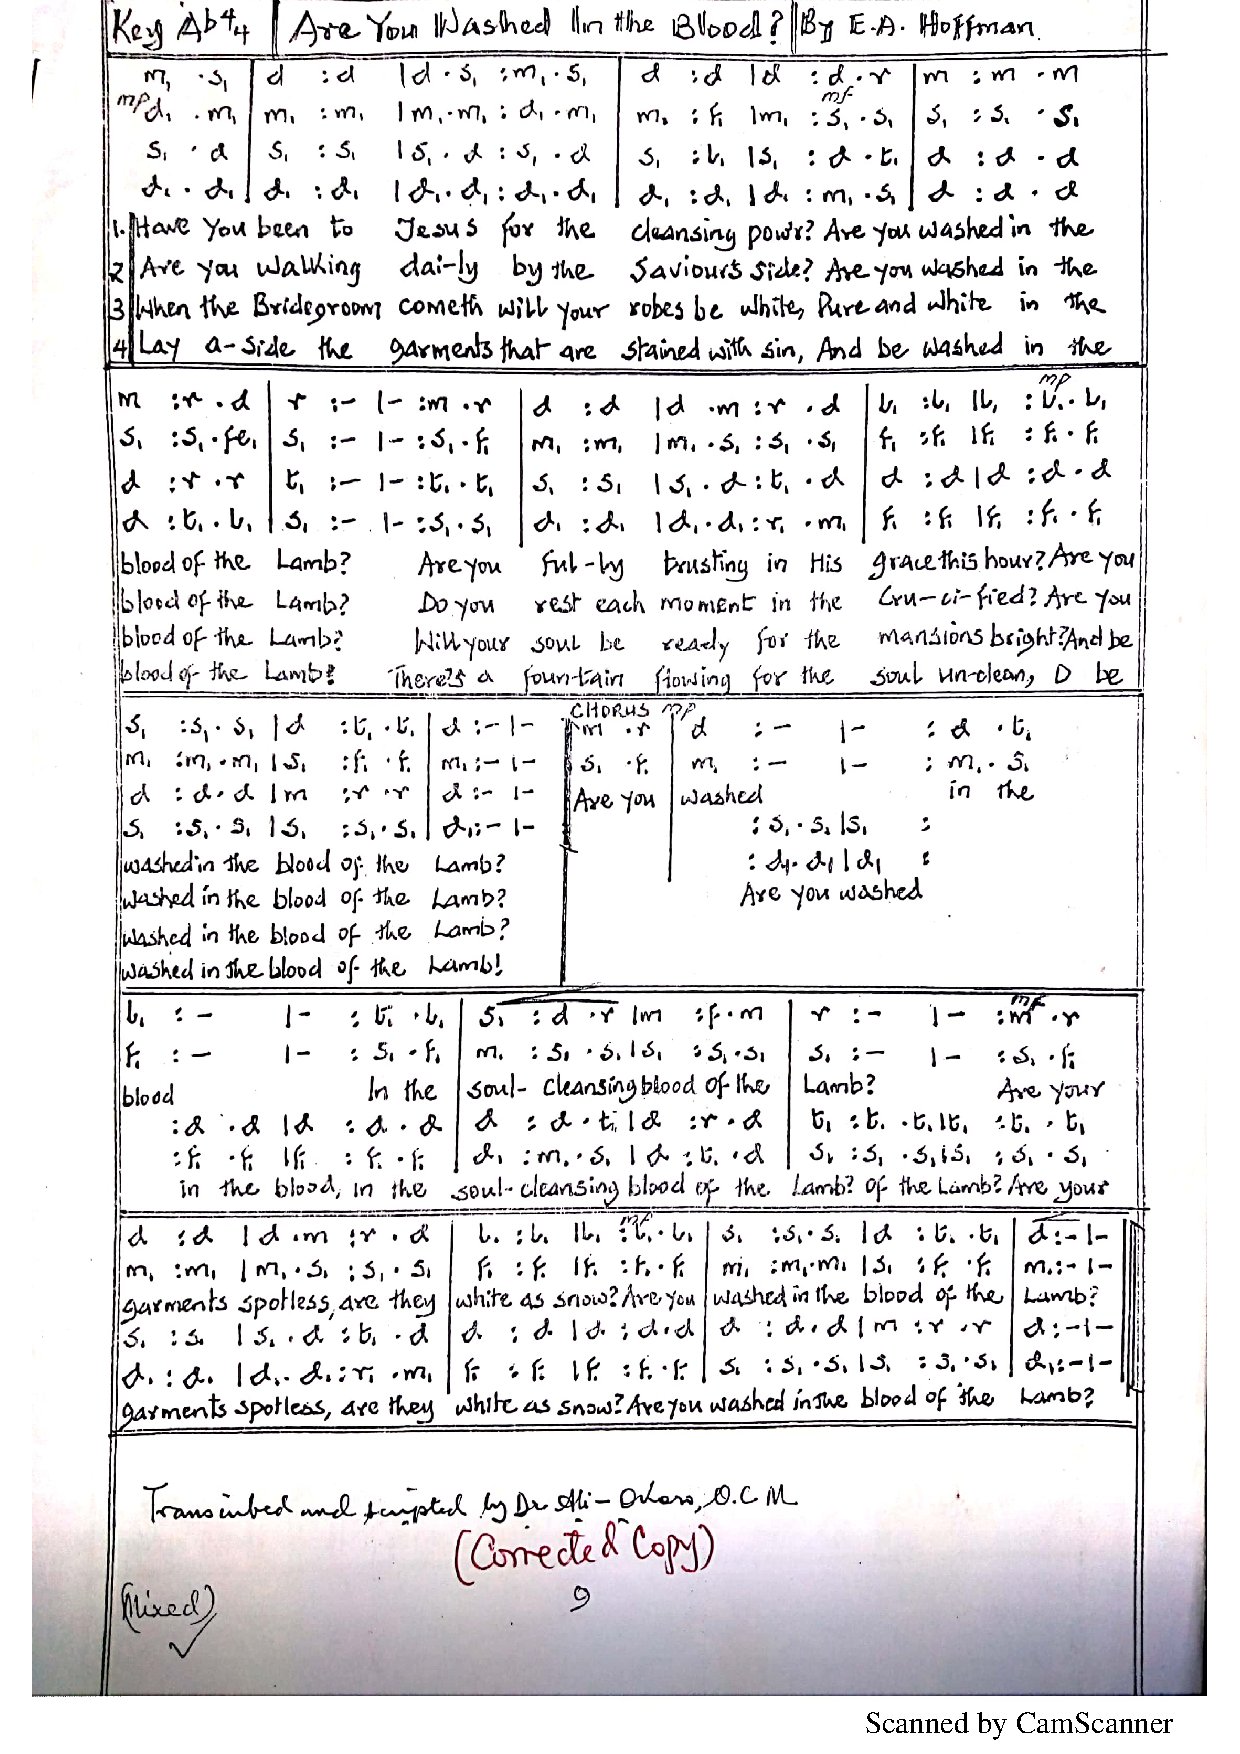 Key Ab 4/4 || Are You Washed In the Blood? || By E.A. Hoffman.
m, . s, | d : d | d . s, : m, . s, | d : d | d : d . r | m : m . m
mp mf
d, . m, | m, : m, | m, . m, : d, . m, | m, : f, | m, : s, . s, | s, : s, . s,
s, . d | s, : s, | s, . d : s, . d | s, : l, | s, : d . t, | d : d . d
d, . d, | d, : d, | d, . d, : d, . d, | d, : d, | d, : m, . s, | d : d . d
1. Have You been to Jesus for the cleansing powr? Are you washed in the
2 Are you walking dai-ly by the Saviour's side? Are you washed in the
3 When the Bridegroom cometh will your robes be white, Pure and white in the
4 Lay a-side the garments that are stained with sin, And be washed in the
mp
m : r . d | r : - | - : m . r | d : d | d . m : r . d | l, : l, | l, : l, . l,
s, : s, . fe, | s, : - | - : s, . f, | m, : m, | m, . s, : s, . s, | f, : f, | f, : f, . f,
d : r . r | t, : - | - : t, . t, | s, : s, | s, . d : t, . d | d : d | d : d . d
d : t, . l, | s, : - | - : s, . s, | d, : d, | d, . d, : r, . m, | f, : f, | f, : f, . f,
blood of the Lamb? Are you ful-ly trusting in His grace this hour? Are you
blood of the Lamb? Do you rest each moment in the Cru-ci-fied? Are you
blood of the Lamb? Will your soul be ready for the mansions bright? And be
blood of the Lamb! There's a foun-tain flowing for the soul un-clean, O be
CHORUS mp
s, : s, . s, | d : t, . t, | d : - | - | m . r | d : - | - : d . t,
m, : m, . m, | s, : f, . f, | m, : - | - | s, . f, | m, : - | - : m, . s,
d : d . d | m : r . r | d : - | - | Are you | washed in the
s, : s, . s, | s, : s, . s, | d, : - | - | : s, . s, | s, :
washed in the blood of the Lamb? : d, . d, | d, :
washed in the blood of the Lamb? Are you washed
washed in the blood of the Lamb?
washed in the blood of the Lamb!
mf
l, : - | - : t, . l, | s, : d . r | m : f . m | r : - | - : m . r
f, : - | - : s, . f, | m, : s, . s, | s, : s, . s, | s, : - | - : s, . f,
blood In the soul- cleansing blood of the Lamb? Are your
: d . d | d : d . d | d : d . t, | d : r . d | t, : t, . t, | t, : t, . t,
: f, . f, | f, : f, . f, | d, : m, . s, | d : t, . d | s, : s, . s, | s, : s, . s,
in the blood, in the soul-cleansing blood of the Lamb? Of the Lamb? Are your
mf
d : d | d . m : r . d | l, : l, | l, : l, . l, | s, : s, . s, | d : t, . t, | d : - | -
m, : m, | m, . s, : s, . s, | f, : f, | f, : f, . f, | m, : m, . m, | s, : f, . f, | m, : - | -
garments spotless, are they white as snow? Are you washed in the blood of the Lamb?
s, : s, | s, . d : t, . d | d : d | d : d . d | d : d . d | m : r . r | d : - | -
d, : d, | d, . d, : r, . m, | f, : f, | f, : f, . f, | s, : s, . s, | s, : s, . s, | d, : - | -
garments spotless, are they white as snow? Are you washed in the blood of the Lamb?
Transcribed and scripted by Dr O.C.M
(Corrected Copy)
9
(Mixed)
Scanned by CamScanner